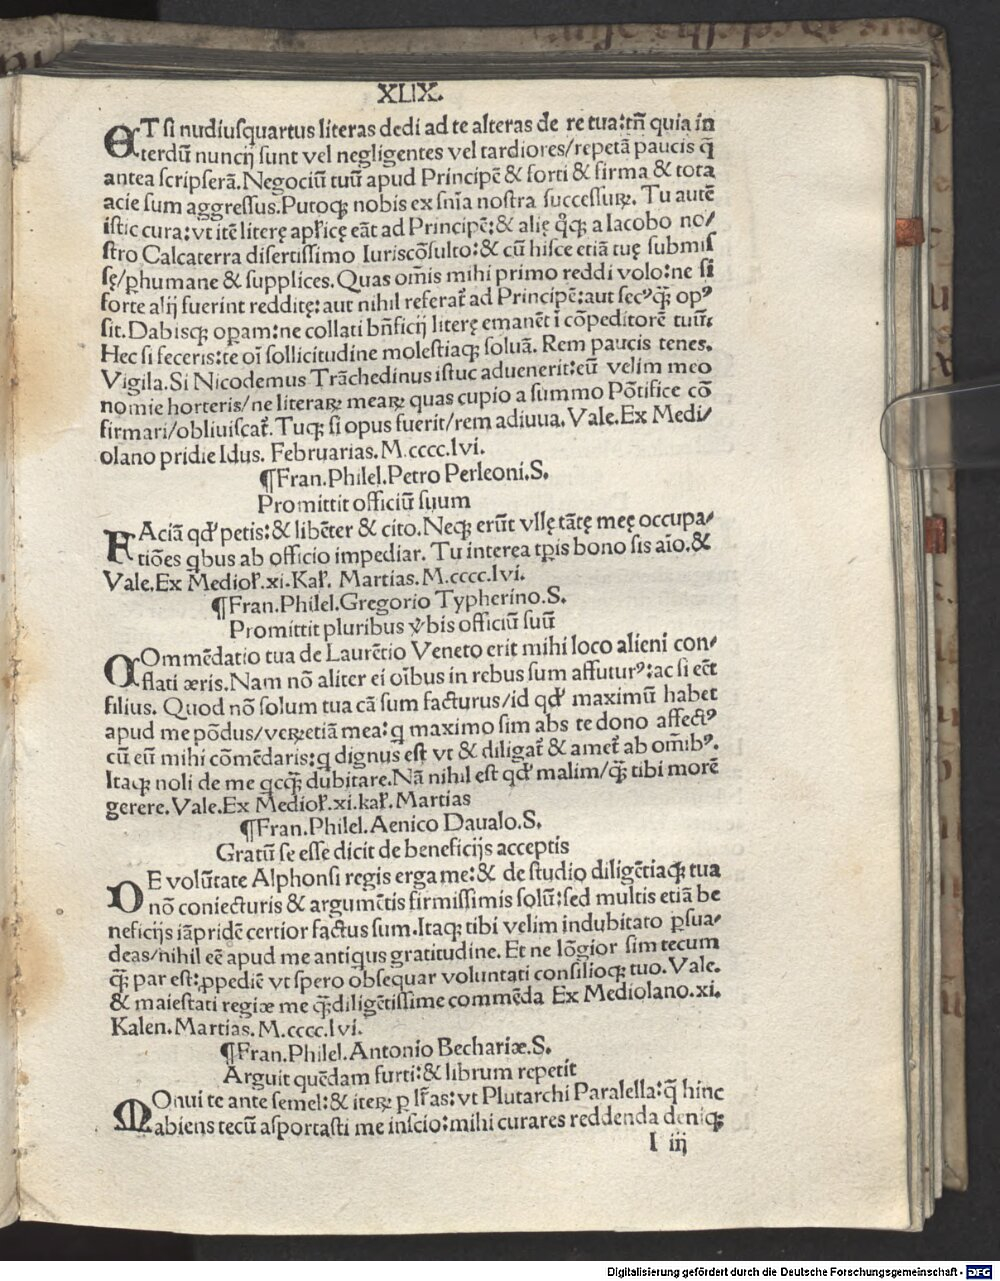 XLIX.
ET si nudiusquartus literas dedi ad te alteras de re tua:tñ quia in
terdū nuncij sunt vel negligentes vel tardiores/repetā paucis q̄
antea scripserā.Negociū tuū apud Principē & forti & firma & tota
acie sum aggressus.Putoqꝫ nobis ex sñia nostra successuꝝ. Tu autē
istic cura:vt itē literę apl̓icę eāt ad Principē:& alię qͦqꝫ a Iacobo no/
stro Calcaterra disertissimo Iuriscōsulto:& cū hisce etiā tuę submis
sę/ꝑhumane & supplices. Quas om̄is mihi primo reddi volo:ne si
forte alij fuerint redditę:aut nihil referat᷑ ad Principē:aut secꝰqꝫ̄ opꝰ
sit.Dabisqꝫ oꝑam:ne collati bn̄ficij literę emanēt ī cōpeditorē tuū.
Hec si feceris:te oī sollicitudine molestiaqꝫ soluā. Rem paucis tenes.
Vigila.Si Nicodemus Trāchedinus istuc aduenerit:eū velim meo
nomie horteris/ne literaꝝ meaꝝ quas cupio a summo Pōtifice cō
firmari/obliuiscat᷑.Tuqꝫ si opus fuerit/rem adiuua.Vale.Ex Medi/
olano pridie Idus. Februarias. M.cccc.lvi.
¶Fran.Philel.Petro Perleoni.S.
Promittit officiū suum
FAciā qd̓ petis:& libēter & cito.Neqꝫ erūt vllę tātę meę occupa/
tiōes qbus ab officio impediar. Tu interea tꝑis bono sis aīo.&
Vale.Ex Mediol̓.xi.Kal̓. Martias.M.cccc.lvi.
¶Fran.Philel.Gregorio Typherino.S.
Promittit pluribus v̓bis officiū suū
COmmēdatio tua de Laurētio Veneto erit mihi loco alieni con/
flati æris.Nam nō aliter ei oībus in rebus sum affuturꝰ:ac si eēt
filius. Quod nō solum tua cā sum facturus/id qd̓ maximū habet
apud me pōdus/veꝝetiā mea:q maximo sim abs te dono affectꝰ
cū eū mihi cōmēdaris:q dignus est vt & diligat᷑ & amet᷑ ab om̄ibꝰ.
Itaqꝫ noli de me qcqꝫ̄ dubitare.Nā nihil est qd̓ malim/qꝫ̄ tibi morē
gerere.Vale.Ex Mediol̓.xi.kal̓.Martias
¶Fran.Philel.Aenico Daualo.S.
Gratū se esse dicit de beneficijs acceptis
DE volūtate Alphonsi regis erga me:& de studio diligētiaqꝫ tua
nō coniecturis & argumētis firmissimis solū:sed multis etiā be
neficijs iāpridē certior factus sum.Itaqꝫ tibi velim indubitato ꝑsua/
deas/nihil eē apud me antiqus gratitudine. Et ne lōgior sim tecum
qꝫ̄ par est:ꝓpediē vt spero obsequar voluntati consilioqꝫ tuo. Vale.
& maiestati regiæ me qꝫ̄diligētissime commēda Ex Mediolano.xi.
Kalen.Martias. M.cccc.lvi.
¶Fran.Philel.Antonio Bechariæ.S.
Arguit quēdam furti:& librum repetit
MOnui te ante semel:& iteꝝ ꝑ lr̄as:vt Plutarchi Paralella:q̄ hinc
abiens tecū asportasti me inscio:mihi curares reddenda deniqꝫ
I iij
Digitalisierung gefördert durch die Deutsche Forschungsgemeinschaft - DFG